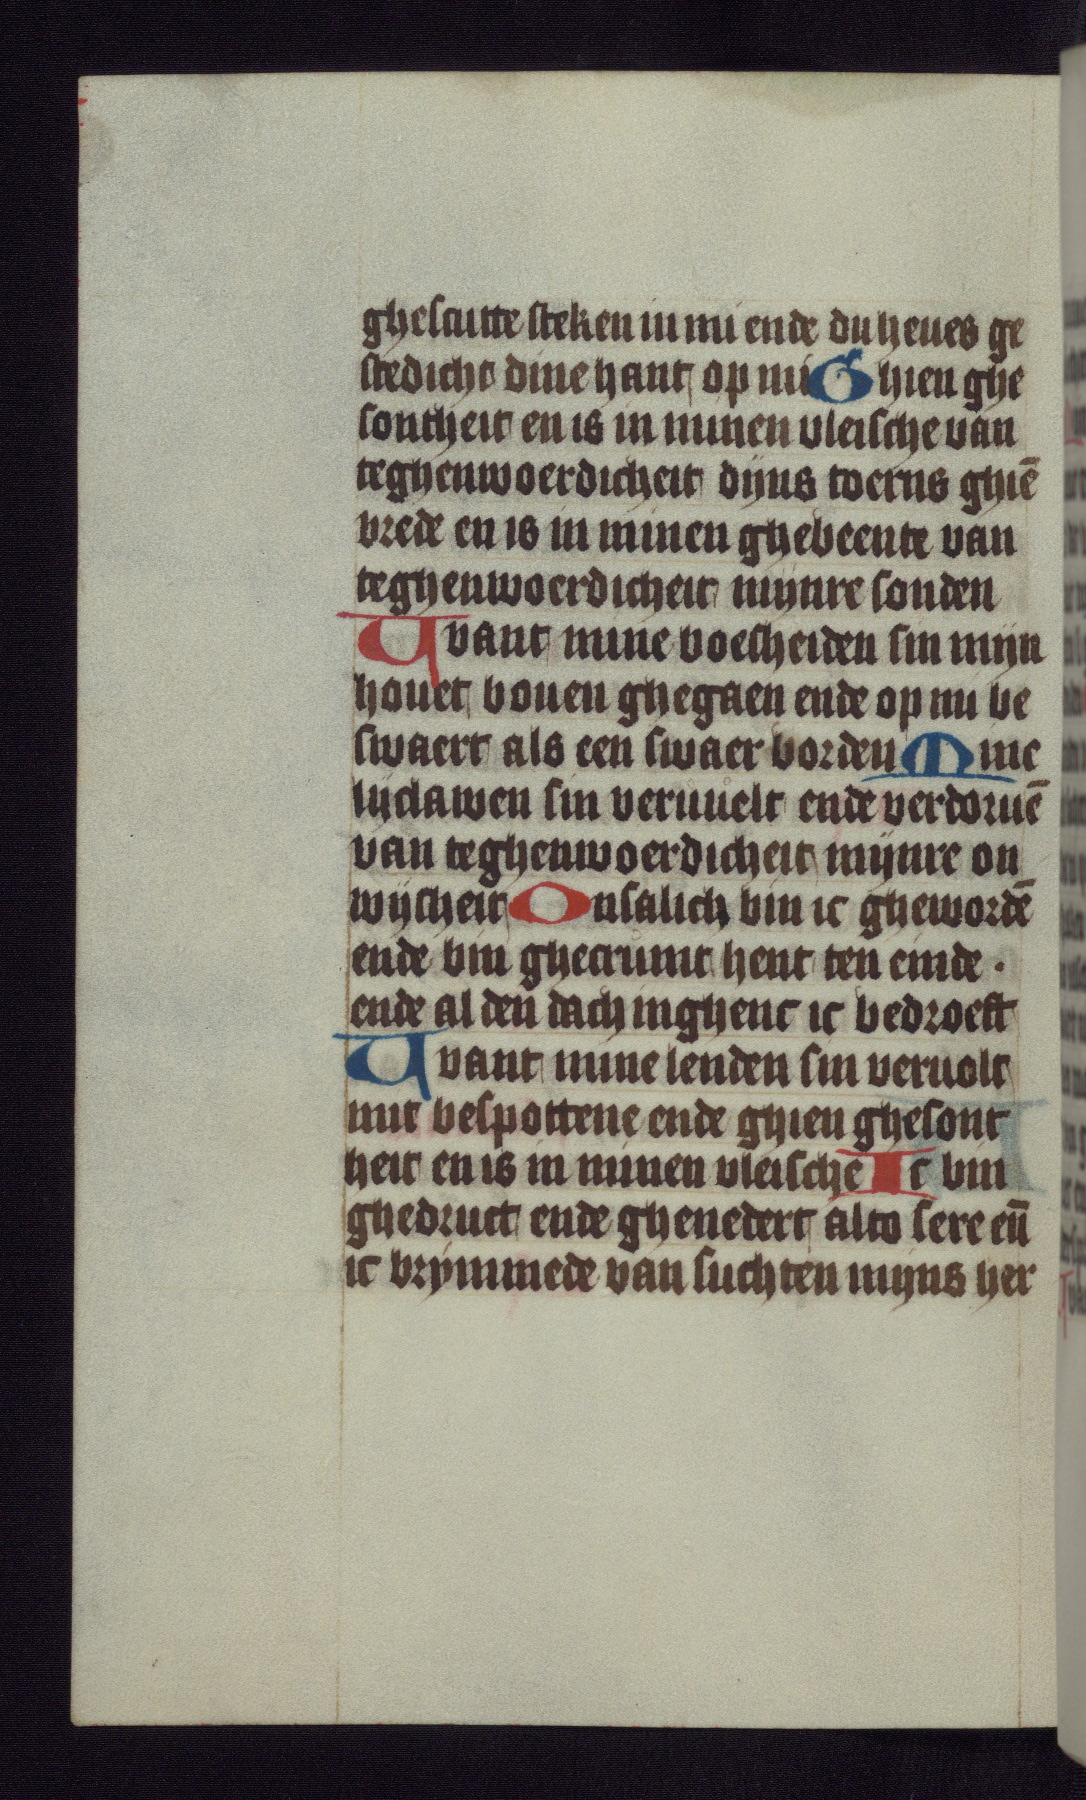 ghescutte steken in mi ende du heues ge
stedicht dine hant op mi Ghien ghe
sontheit en is in minen vleische van
teghenwoerdicheit dijns toerns ghiē
vrede en is in minen ghebeente van
teghenwoerdicheit mijnre sonden
Want mine boesheiden sin mijn
houet bouen ghegaen ende op mi be
swaert als een swaer borden Mine
lijclawen sin veruuelt ende verdoruē
van teghenwoerdicheit mijnre on
wijsheit Onsalich bin ic ghewordē
ende bin ghecrumt hent ten einde ·
ende al den dach inghenc ic bedroeft
Want mine lenden sin veruolt
mit bespottene ende ghien ghesont
heit en is in minen vleische Ic bin
ghedruct ende ghenedert alto sere eñ
ic brymmede van suchten mijns her